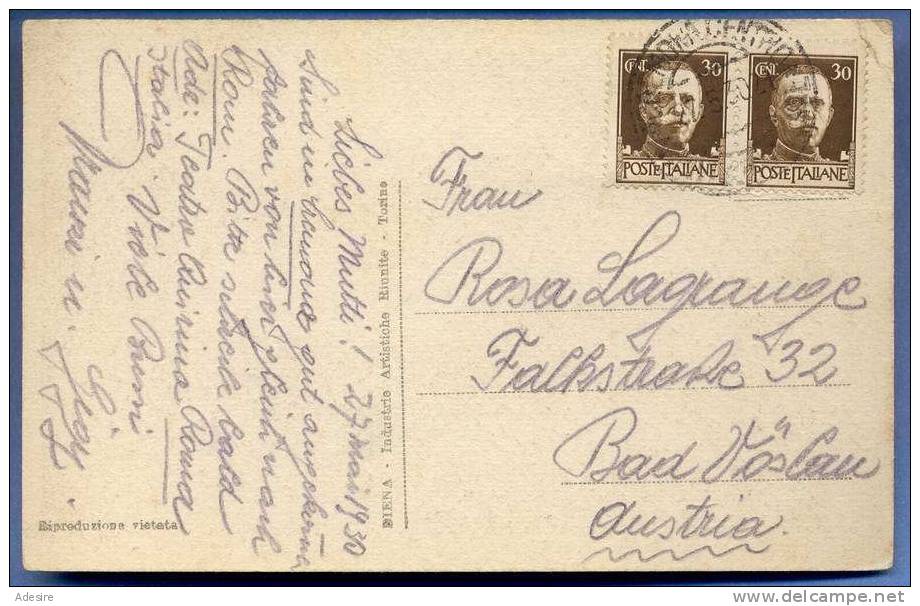 Liebes Mutti! 27 Mai 1930
Sind in gut angekomm
fahren von hier gleich nach
Rom. Bitte schreibe bald
Ade: Teatro Quirino Roma
Italia. Viele Bussi
u.
DIENA - Industrie Artistiche Riunite - Torino
Riproduzione vietata
CENT. 30
POSTE ITALIANE
CENT. 30
POSTE ITALIANE
CENTRO
Frau
Rosa Lagrange
Falkstraße 32
Bad Vöslau
Austria.
Adesire
www.delcampe.net